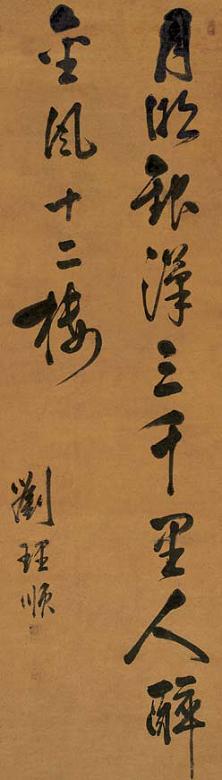 月明銀漢三千里人醉
金風十二樓
劉理順